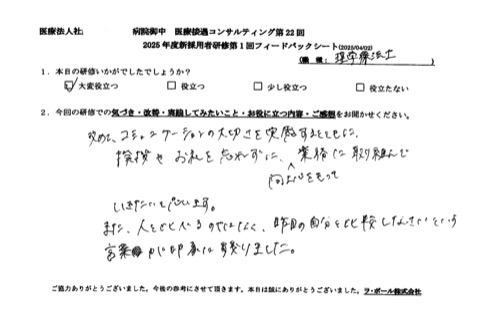 医療法人社　　　　病院御中　医療接遇コンサルティング第22回
2025年度新採用者研修第1回フィードバックシート(2025/04/02)
(職 種: 理学療法士
1．本日の研修いかがでしたでしょうか？
☑ 大変役立つ　□ 役立つ　□ 少し役立つ　□ 役立たない
2．今回の研修での気づき・改善・実践してみたいこと・お役に立つ内容・ご感想をお聞かせください。
改めて、コミュニケーションの大切さを実感するとともに、
挨拶やお礼を忘れずに、業務に取り組んで
向上心をもって
いきたいと思います。
また、人とくらべるのではなく、昨日の自分と比較しなさいという
言葉が印象に残りました。
ご協力ありがとうございました。今後の参考にさせて頂きます。本日は誠にありがとうございました。ラ・ポール株式会社